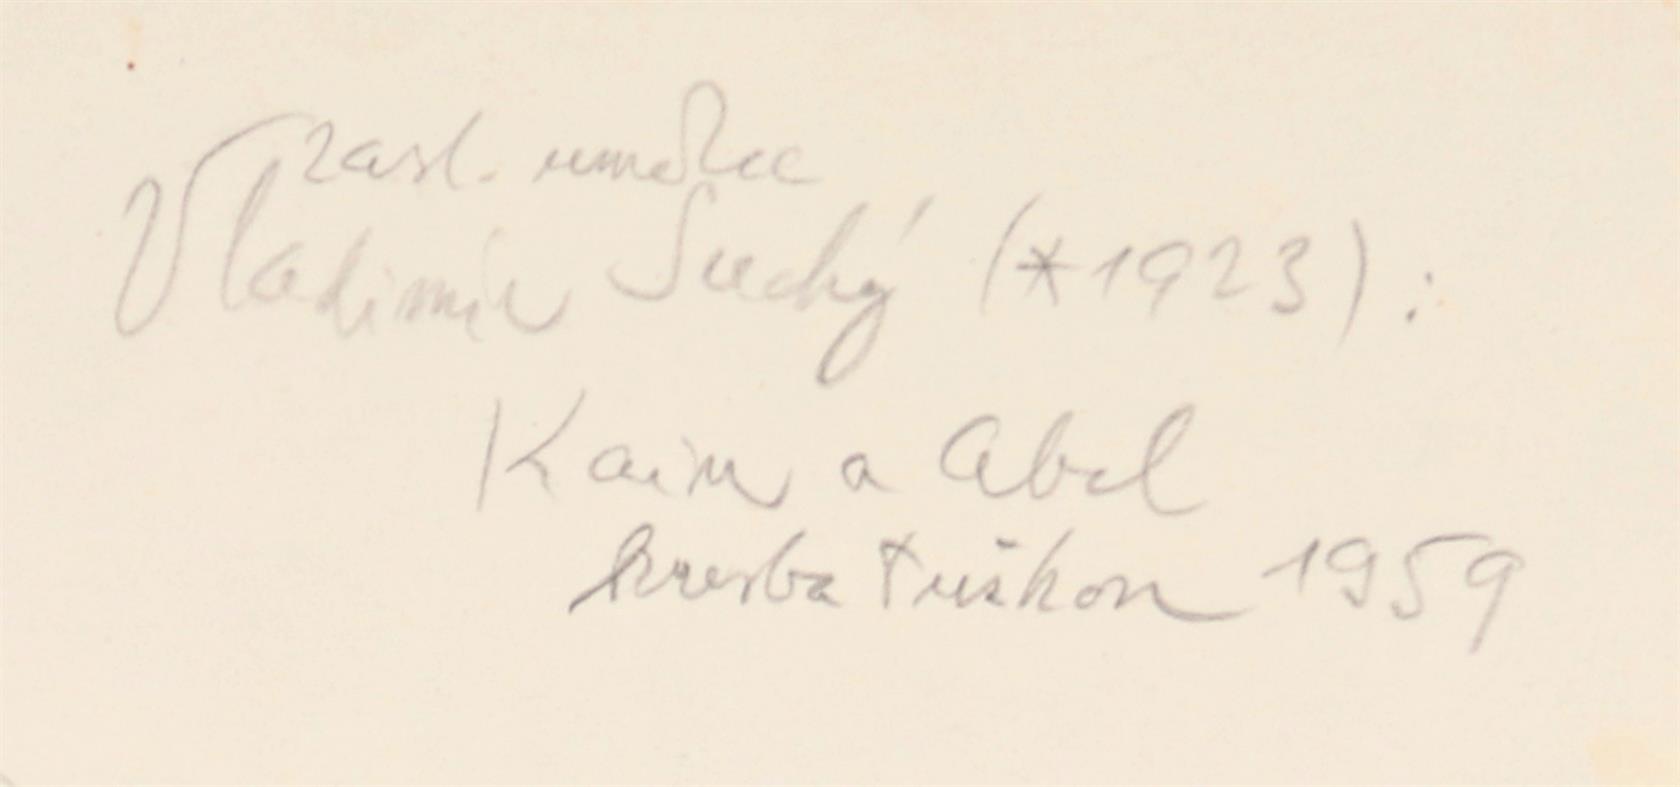 zasl. umělec
Vladimír Suchý (*1923):
Kain a Abel
kresba tuškou 1959